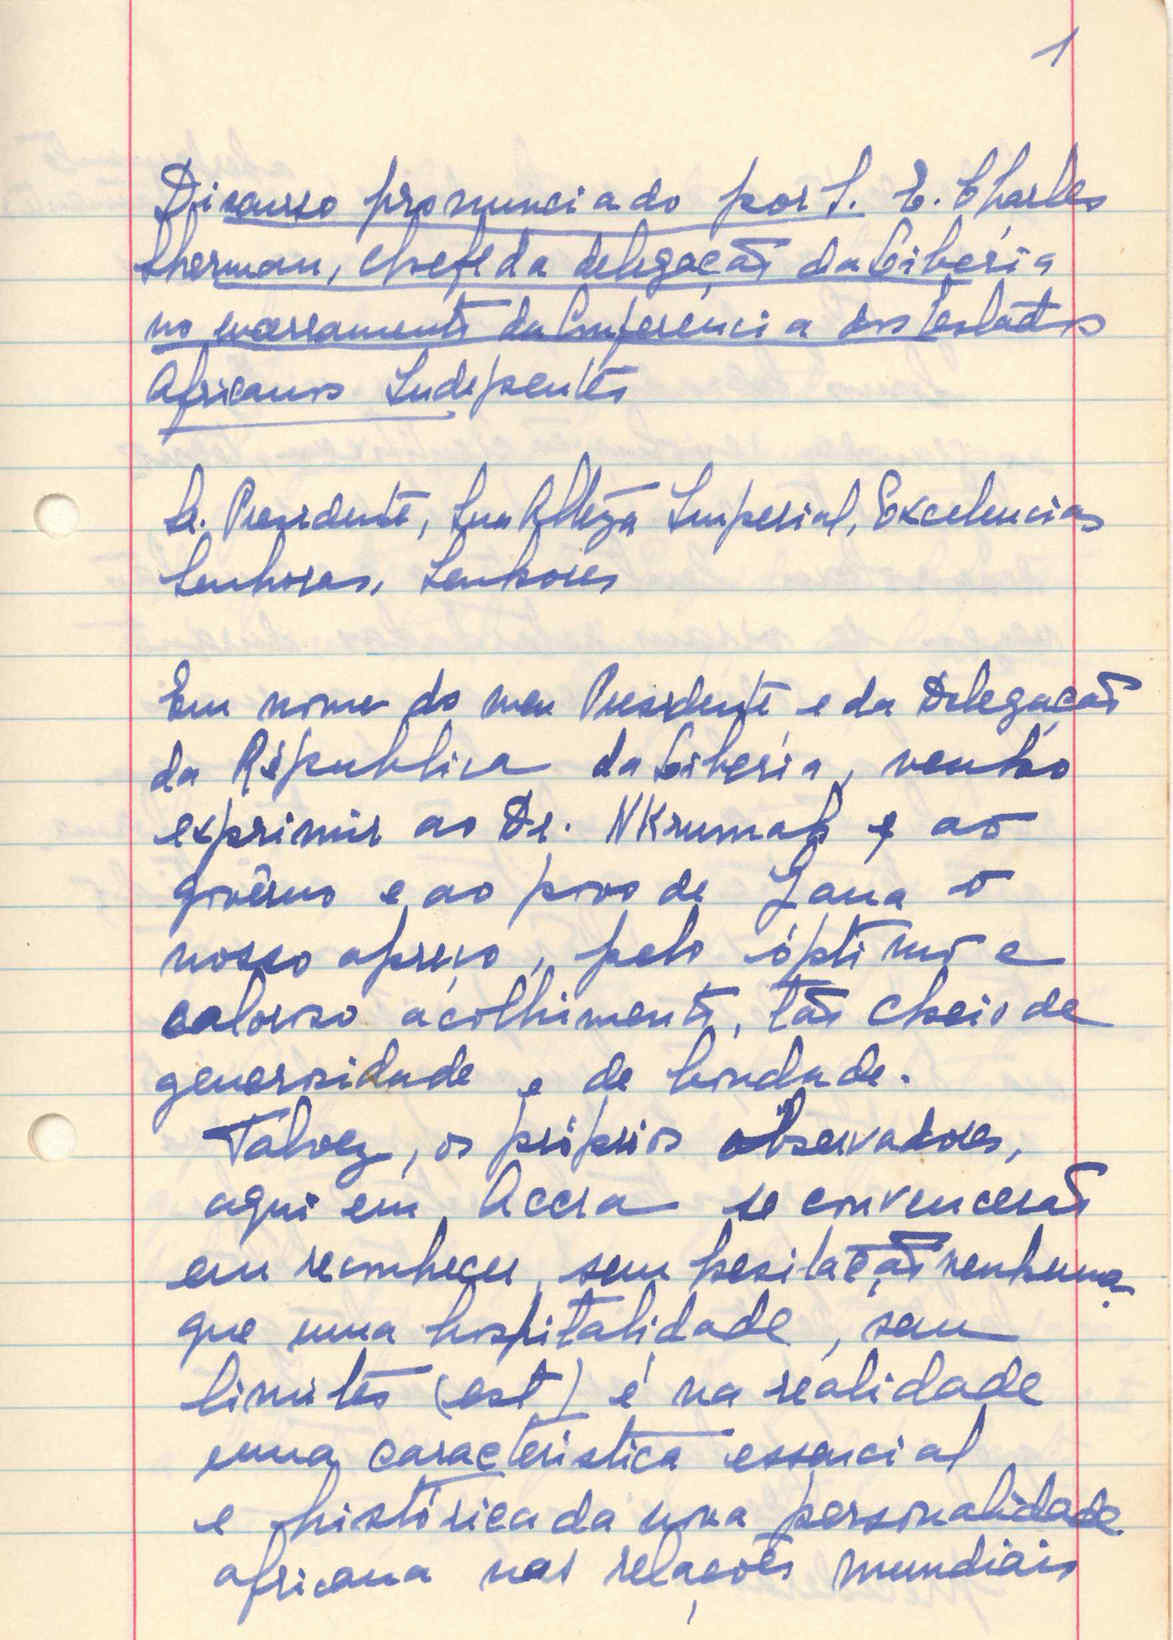 1
Discurso pronunciado por S. E. Charles
Sherman, chefe da delegação da Libéria
no encerramento da Conferência dos Estados
Africanos Indepentes
Sr. Presidente, Sua Alteza Imperial, Excelencias
Senhoras, Senhores
Em nome do meu Presidente e da Delegação
da Républica da Libéria, venho
exprimir ao Dr. NKrumah e ao
govêrno e ao povo de Gana o
nosso apreço, pelo óptimo e
caloroso acolhimento, tão cheio de
generosidade e de bondade.
Talvez, os próprios observadores,
aqui em Accra se convencerão
em reconhecer, sem hesitação nenhuma
que uma hospitalidade, sem
limites (est) é na realidade
uma característica essencial
e histórica da nova personalidade
africana nas relações mundiais